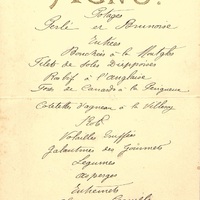 MENU.
Potages
Perlé et Brunoise
Entrées
Bouchées à la
Filets de Soles Dieppoises
Rosbif à l'anglaise
Foie de Canards à la Périgueux
Côtelettes d'agneau à la Villeroy
Rôti
Volailles truffées
Galantines des Gourmets
Legumes
asperges
Entremets